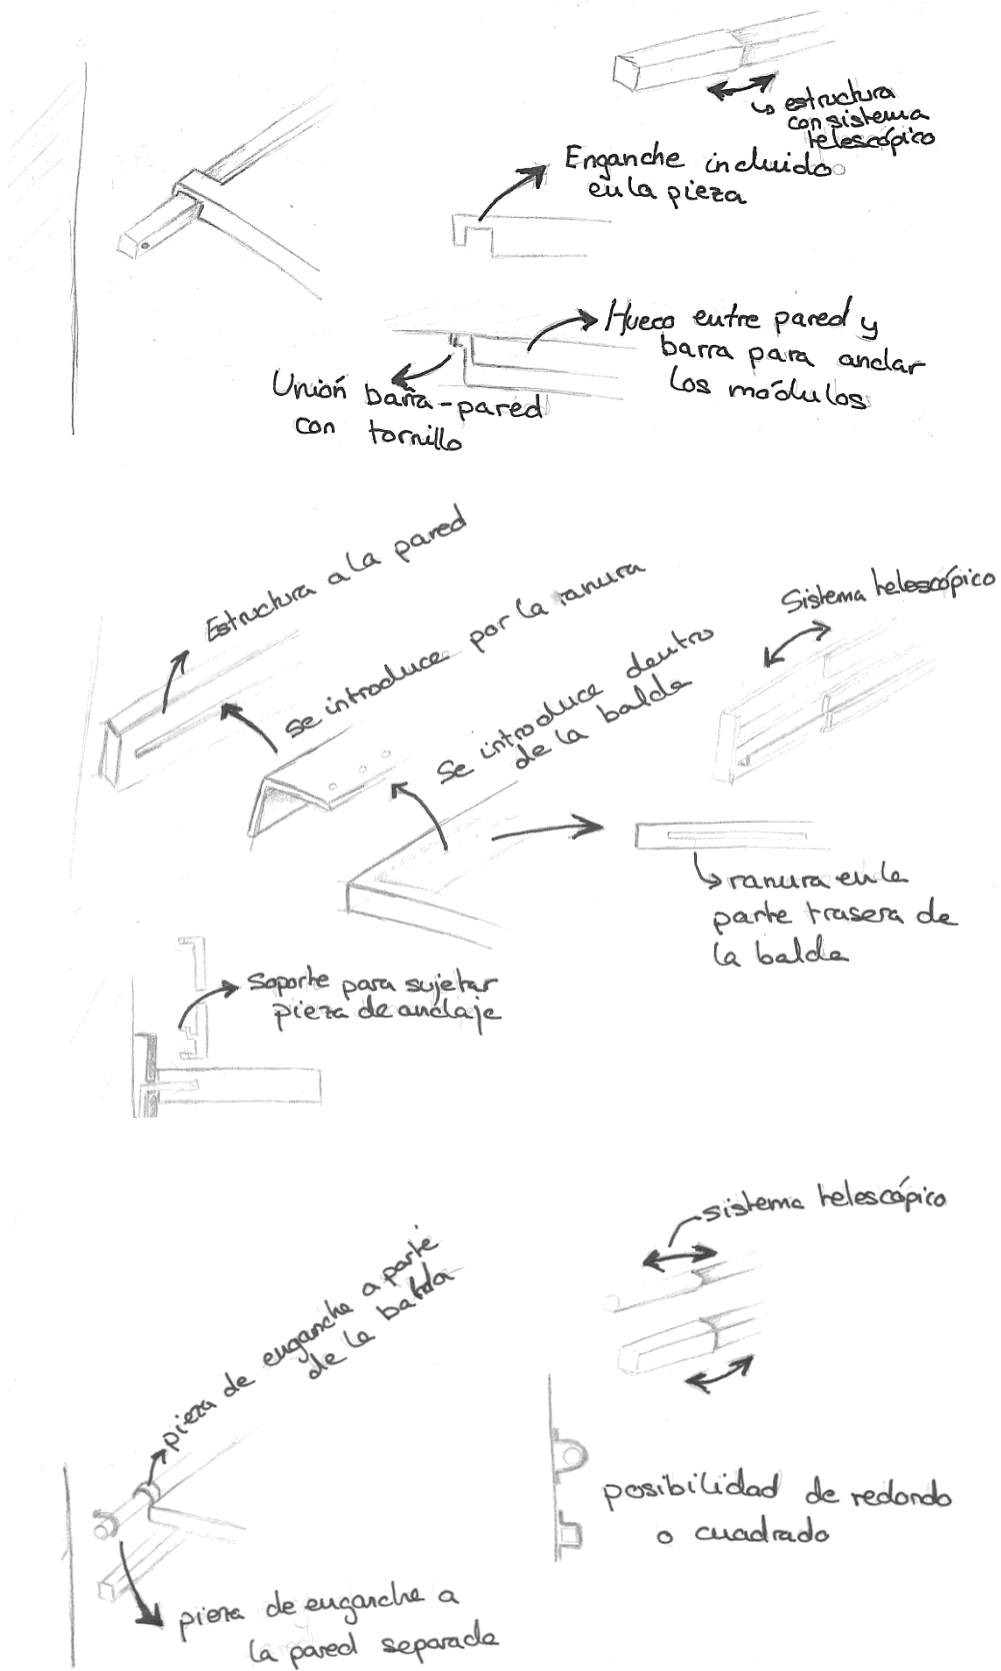 estructura
con sistema
telescópico
Enganche incluido
en la pieza
Hueco entre pared y
barra para anclar
los módulos
Unión barra-pared
con tornillo
Estructura a la pared
se introduce por la ranura
se introduce dentro
de la balda
Sistema telescópico
ranura en la
parte trasera de
la balda
soporte para sujetar
pieza de anclaje
sistema telescópico
pieza de enganche a parte
de la balda
posibilidad de redondo
o cuadrado
pieza de enganche a
la pared separada